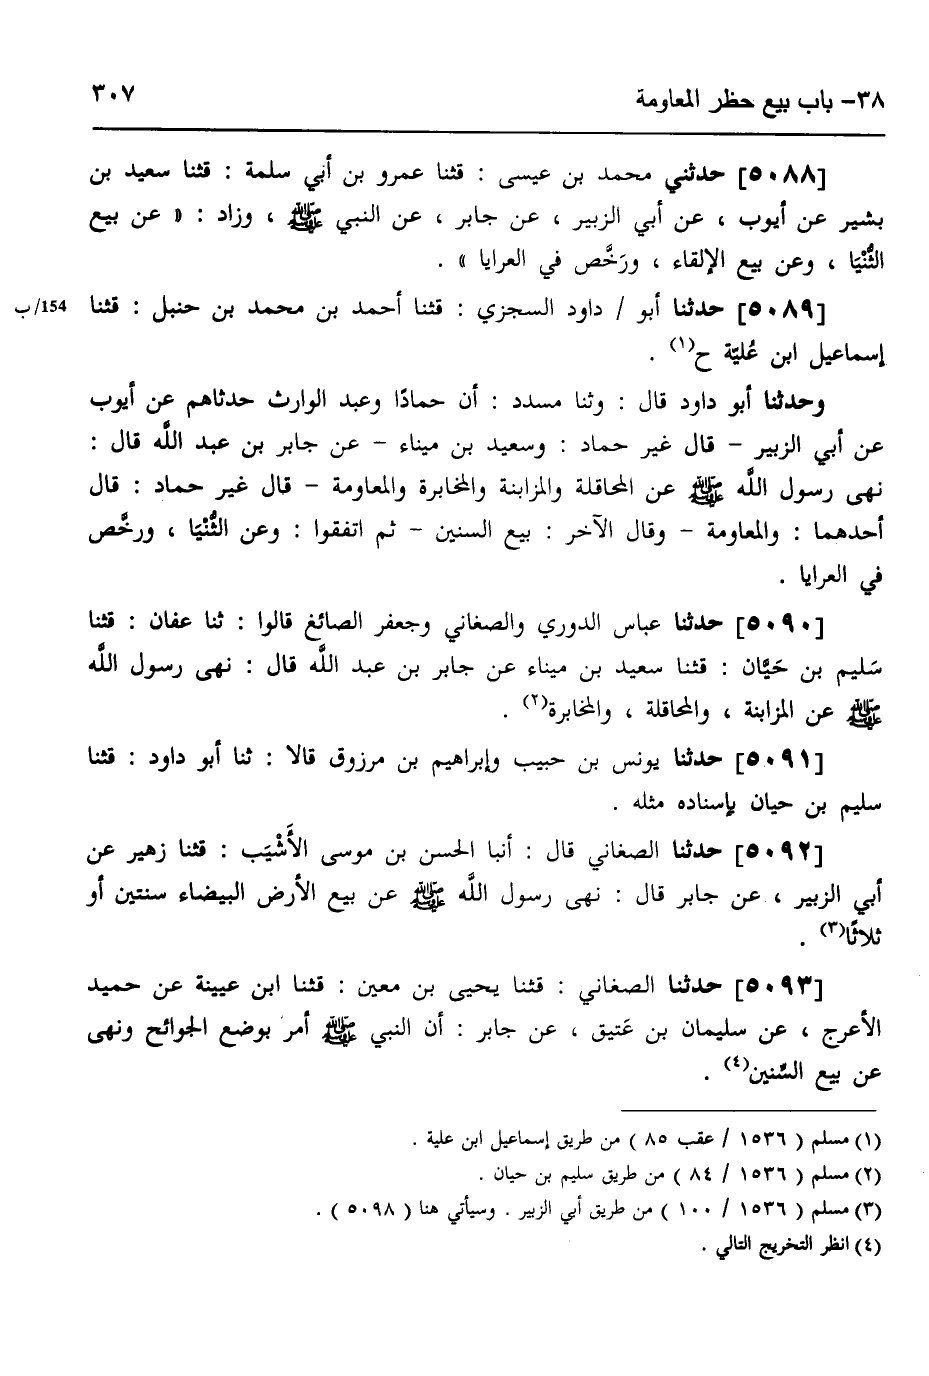 ٣٨- باب بيع حظر المعاومة
٣٠٧
[٥٠٨٨] حدثني محمد بن عيسى : قثنا عمرو بن أبي سلمة : قثنا سعيد بن
بشير عن أيوب ، عن أبي الزبير ، عن جابر ، عن النبي ﷺ ، وزاد : « عن بيع
الثُّنْيَا ، وعن بيع الإلقاء ، ورَخَّص في العرايا » .
[٥٠٨٩] حدثنا أبو / داود السجزي : قثنا أحمد بن محمد بن حنبل : قثنا
154/ب
إسماعيل ابن عُليّة ح(١) .
وحدثنا أبو داود قال : وثنا مسدد : أن حمادًا وعبد الوارث حدثاهم عن أيوب
عن أبي الزبير – قال غير حماد : وسعيد بن ميناء – عن جابر بن عبد اللَّه قال :
نهى رسول اللَّه ﷺ عن المحاقلة والمزابنة والمخابرة والمعاومة – قال غير حماد : قال
أحدهما : والمعاومة – وقال الآخر : بيع السنين – ثم اتفقوا : وعن الثُّنْيَا ، ورخَّص
في العرايا .
[٥٠٩٠] حدثنا عباس الدوري والصغاني وجعفر الصائغ قالوا : ثنا عفان : قثنا
سَليم بن حَيَّان : قثنا سعيد بن ميناء عن جابر بن عبد اللَّه قال : نهى رسول اللَّه
ﷺ عن المزابنة ، والمحاقلة ، والمخابرة(٢) .
[٥٠٩١] حدثنا يونس بن حبيب وإبراهيم بن مرزوق قالا : ثنا أبو داود : قثنا
سليم بن حيان بإسناده مثله .
[٥٠٩٢] حدثنا الصغاني قال : أنبا الحسن بن موسى الأَشْيَب : قثنا زهير عن
أبي الزبير ، عن جابر قال : نهى رسول اللَّه ﷺ عن بيع الأرض البيضاء سنتين أو
ثلاثًا(٣) .
[٥٠٩٣] حدثنا الصغاني : قثنا يحيى بن معين : قثنا ابن عيينة عن حميد
الأعرج ، عن سليمان بن عَتيق ، عن جابر : أن النبي ﷺ أمر بوضع الجوائح ونهى
عن بيع السِّنين(٤) .
(١) مسلم ( ١٥٣٦ / عقب ٨٥ ) من طريق إسماعيل ابن علية .
(٢) مسلم ( ١٥٣٦ / ٨٤ ) من طريق سليم بن حيان .
(٣) مسلم ( ١٥٣٦ / ١٠٠ ) من طريق أبي الزبير . وسيأتي هنا ( ٥٠٩٨ ) .
(٤) انظر التخريج التالي .